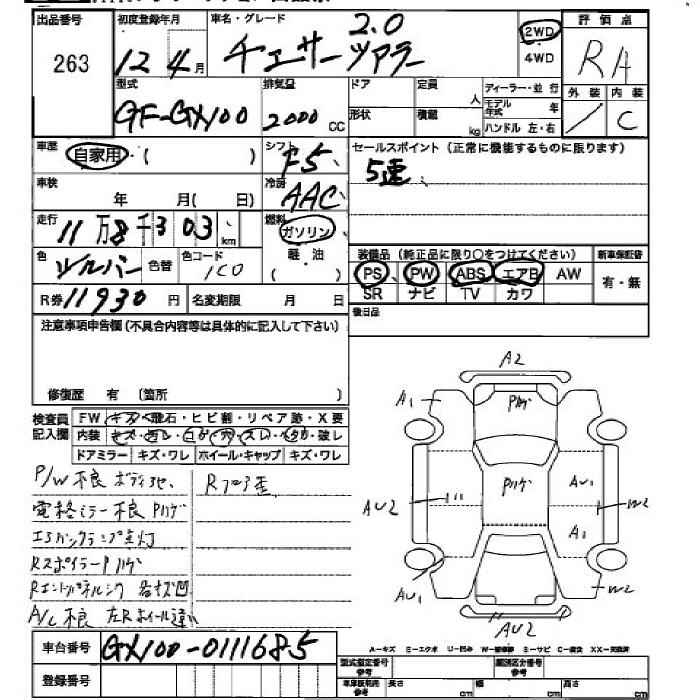 出品番号 初度登録年月 車名・グレード 評価点
263 12年4月 チェサー 2.0 ツアラー 2WD 4WD RA
型式 排気量 ドア 定員 人 ディーラー・並行 外装 内装
GF-GX100 2000 cc 形状 積載 kg モデル年式 年 ハンドル 左・右 / C
車歴 自家用・( ) シフト F5 セールスポイント(正常に機能するものに限ります)
5速、
車検 年 月( 日) 冷房 AAC
走行 11万8千303 km 燃料 ガソリン 軽・油
色 シルバー 色替 色コード 1C0 装備品(純正品に限り○をつけてください) 新車保証書
PS PW ABS エアB AW 有・無
SR ナビ TV カワ
R券 11930円 名変期限 月 日 後日品
注意事項申告欄(不具合内容等は具体的に記入して下さい)
修復歴 有 〔箇所 〕
検査員 FW キズ・飛石・ヒビ割・リペア跡・X要
記入欄 内装 キズ・ヨゴレ・コゲ・穴・スレ・破レ
ドアミラー キズ・ワレ ホイール・キャップ キズ・ワレ
P/W不良 ボディ
電格ミラー不良 Pハゲ
エアバックランプ点灯
Rスポイラー Pハゲ
A/C不良 左Rホイール違い
A2
A1 Pハゲ
Pハゲ AU1
AU2 W2
A1
AU1 W2
AU2
車台番号 GX100-0111685
登録番号
A−キズ E−エクボ U−凹み W−補修跡 S−サビ C−腐食 XX−交換済
型式指定番号 参考 類別区分番号 参考
車庫証明用 参考 長さ cm 幅 cm 高さ cm